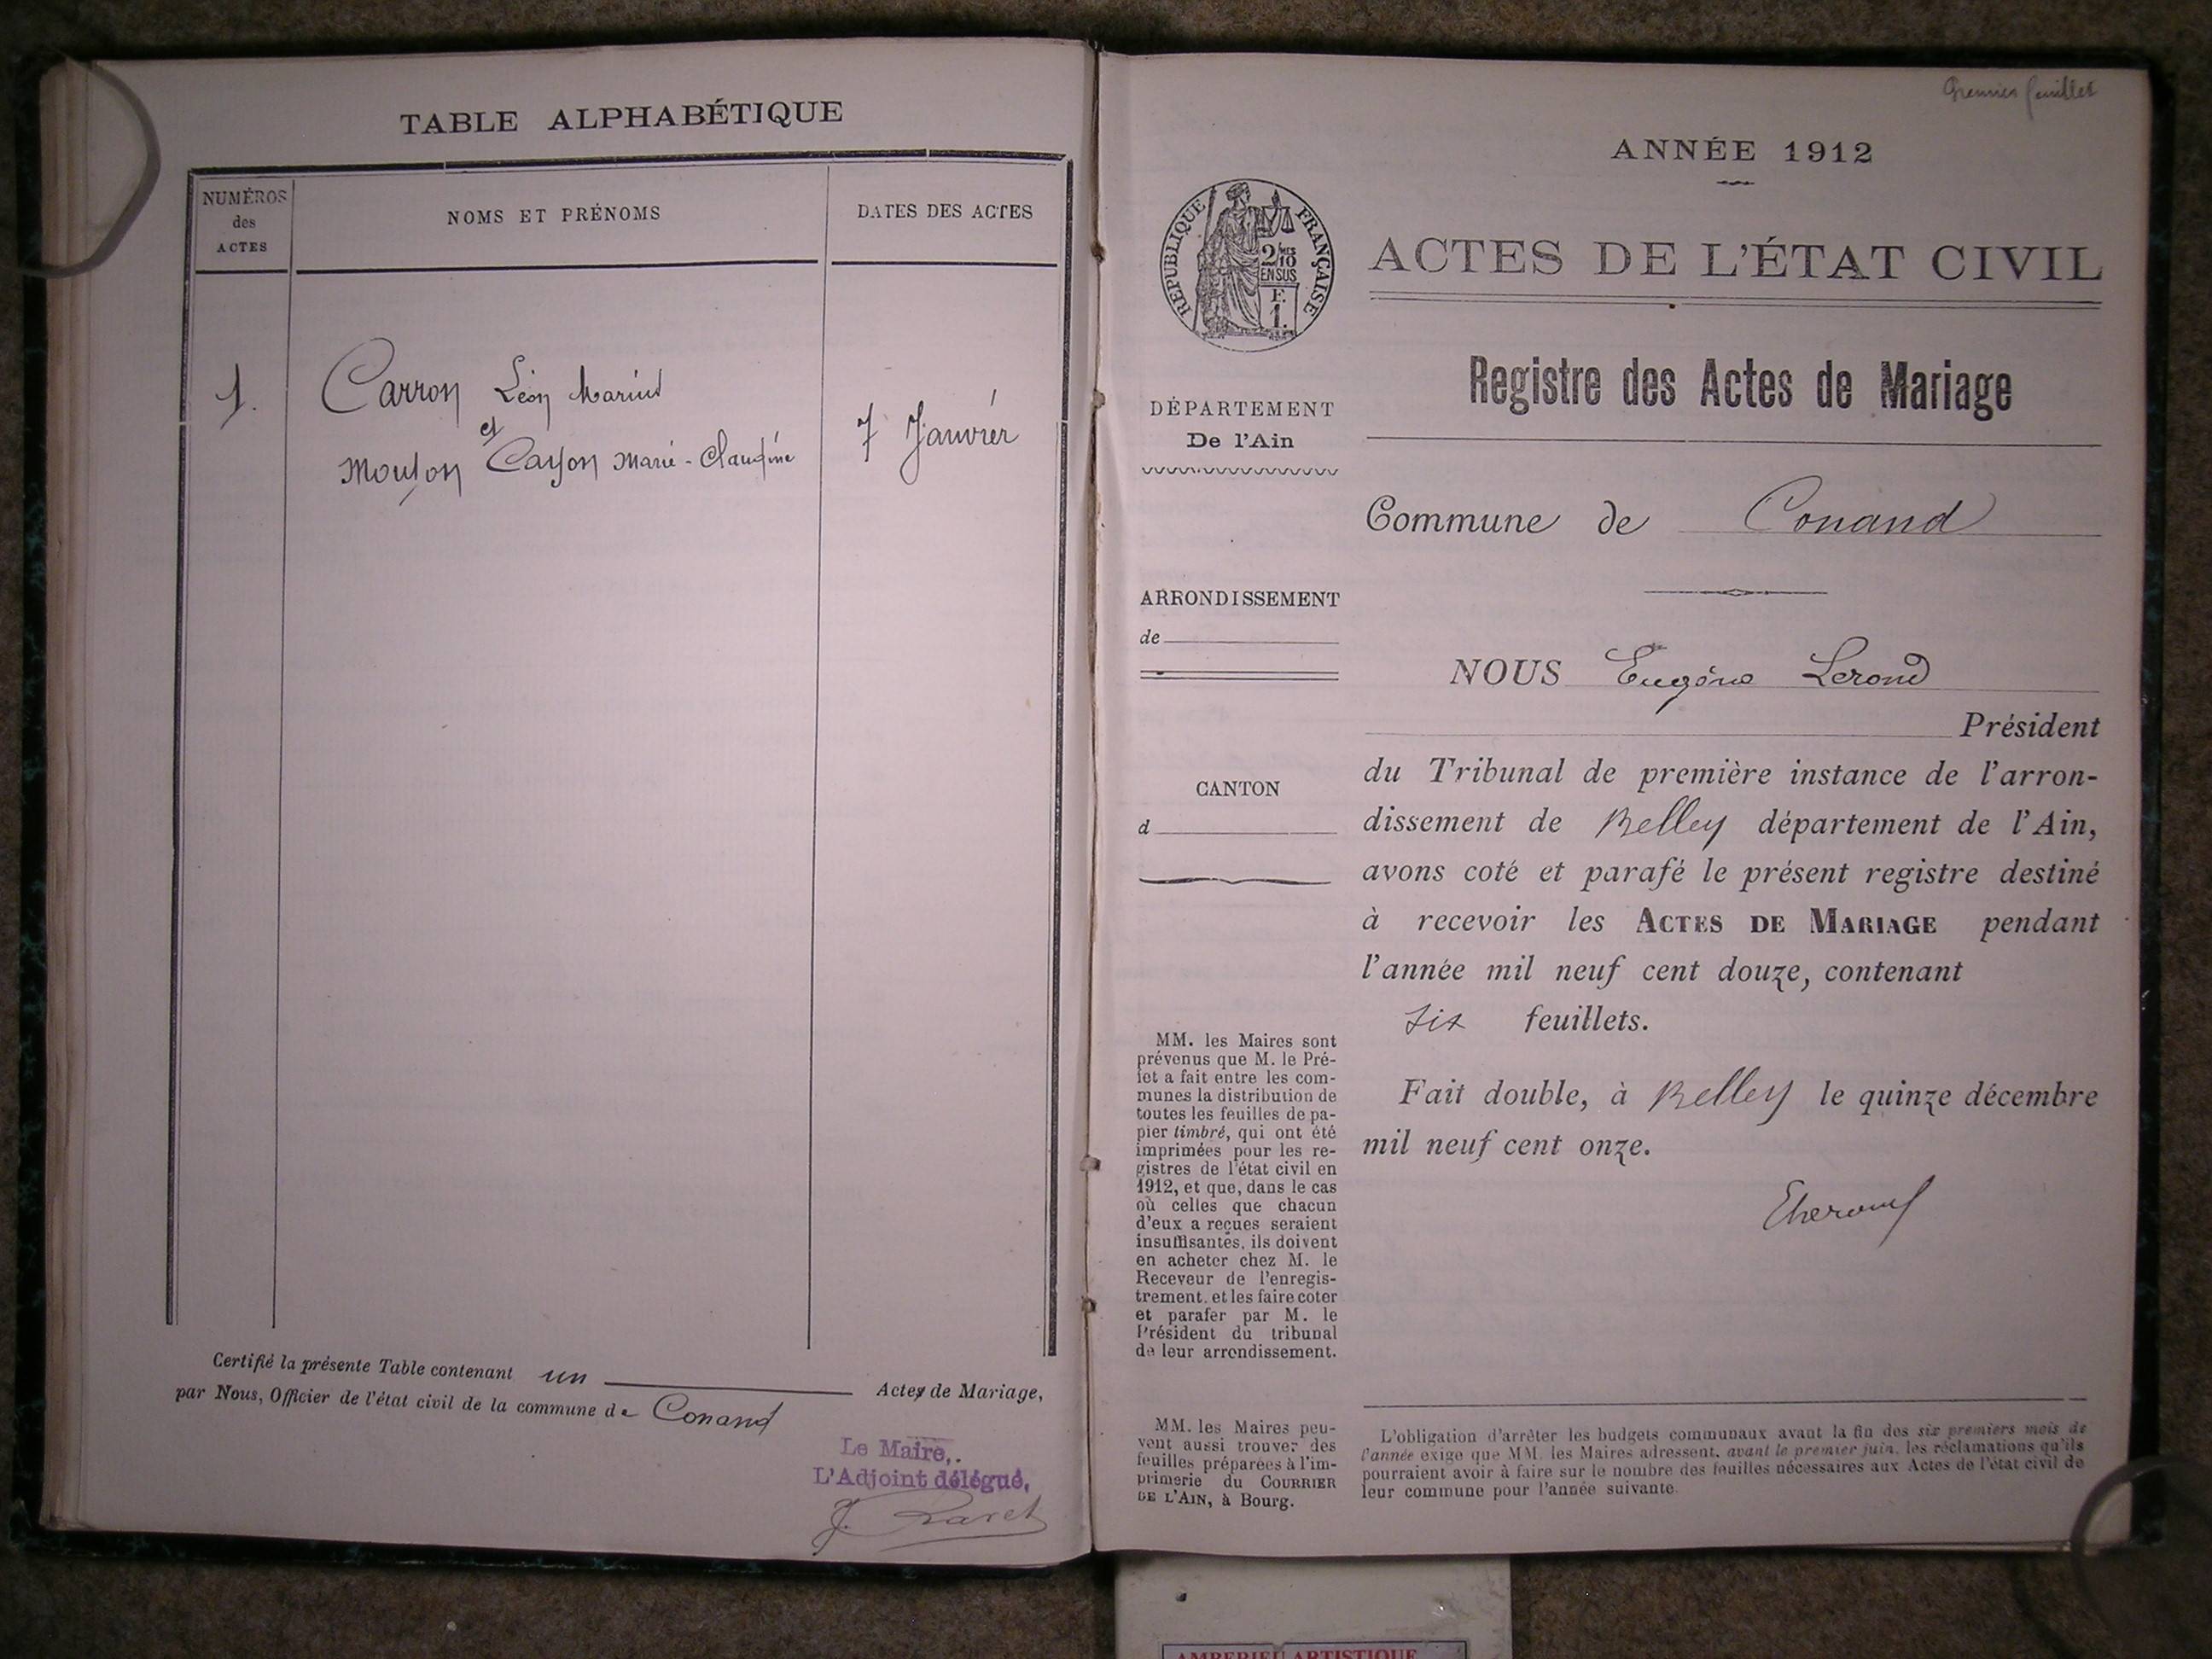 TABLE ALPHABÉTIQUE
NUMÉROS
des
ACTES
NOMS ET PRÉNOMS
DATES DES ACTES
1.
Carron Léon Marius
et
Cayon Marie-Claudine
7 Janvier
Certifié la présente Table contenant un Actes de Mariage,
par Nous, Officier de l'état civil de la commune de Conand
Le Maire,.
L'Adjoint délégué,
Premier feuillet
ANNÉE 1912
RÉPUBLIQUE FRANÇAISE
2/10 EN SUS
F.
1.
ACTES DE L'ÉTAT CIVIL
Registre des Actes de Mariage
DÉPARTEMENT
De l'Ain
Commune de Conand
ARRONDISSEMENT
de
CANTON
d
NOUS Eugène Lerond
Président
du Tribunal de première instance de l'arron-
dissement de Belley département de l'Ain,
avons coté et parafé le présent registre destiné
à recevoir les ACTES DE MARIAGE pendant
l'année mil neuf cent douze, contenant
six feuillets.
Fait double, à Belley le quinze décembre
mil neuf cent onze.
MM. les Maires sont
prévenus que M. le Pré-
fet a fait entre les com-
munes la distribution de
toutes les feuilles de pa-
pier timbré, qui ont été
imprimées pour les re-
gistres de l'état civil en
1912, et que, dans le cas
où celles que chacun
d'eux a reçues seraient
insuffisantes, ils doivent
en acheter chez M. le
Receveur de l'enregis-
trement, et les faire coter
et parafer par M. le
Président du tribunal
de leur arrondissement.
MM. les Maires peu-
vent aussi trouver des
feuilles préparées à l'im-
primerie du COURRIER
DE L'AIN, à Bourg.
L'obligation d'arrêter les budgets communaux avant la fin des six premiers mois de
l'année exige que MM. les Maires adressent, avant le premier juin, les réclamations qu'ils
pourraient avoir à faire sur le nombre des feuilles nécessaires aux Actes de l'état civil de
leur commune pour l'année suivante.
AMBERIEU ARTISTIQUE